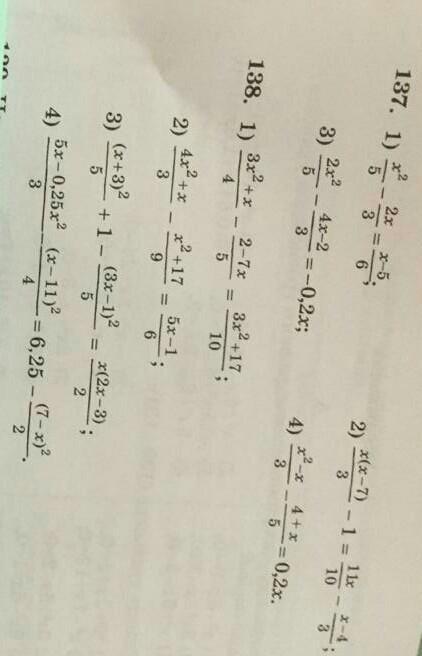 137. 1) x²/5 − 2x/3 = x−5/6; 2) x(x−7)/3 − 1 = 11x/10 − x−4/3;
3) 2x²/5 − 4x−2/3 = −0,2x; 4) x²−x/3 − 4+x/5 = 0,2x.
138. 1) 3x²+x/4 − 2−7x/5 = 3x²+17/10;
2) 4x²+x/3 − x²+17/9 = 5x−1/6;
3) (x+3)²/5 + 1 − (3x−1)²/5 = x(2x−3)/2;
4) 5x−0,25x²/3 − (x−11)²/4 = 6,25 − (7−x)²/2.